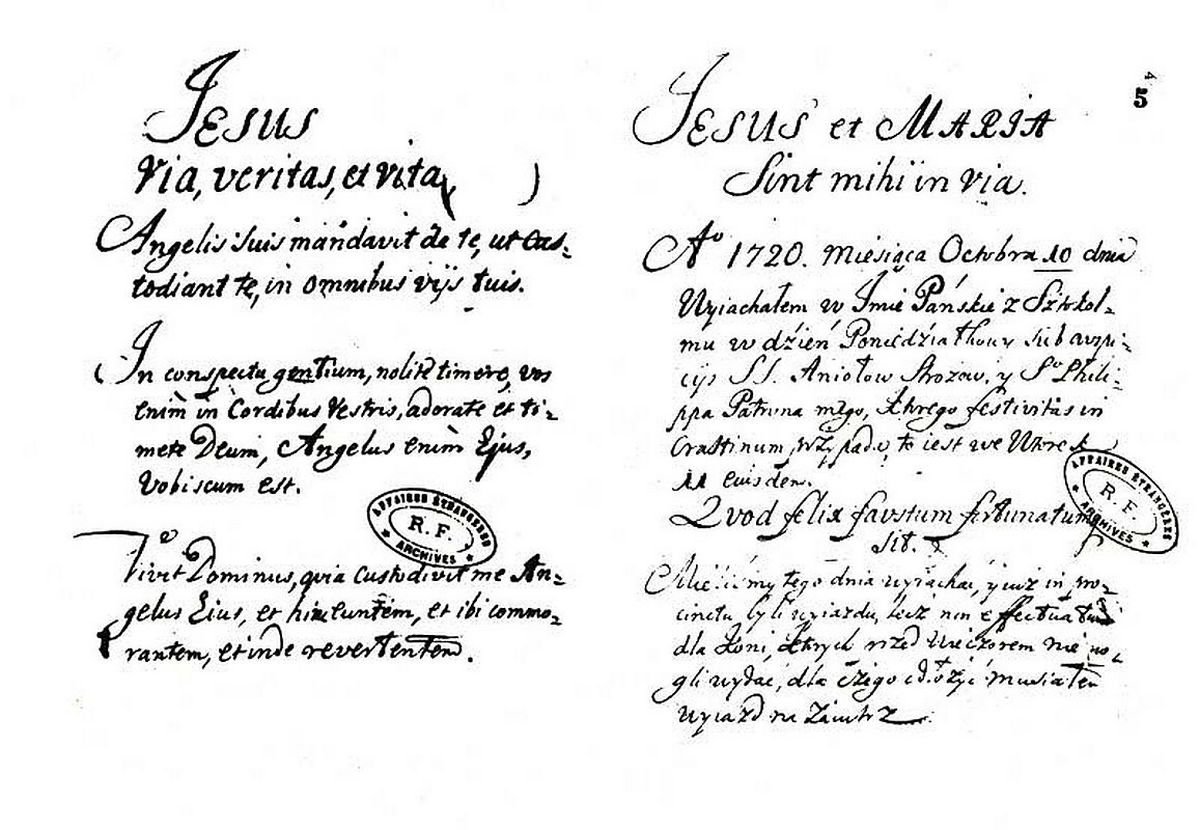 Jesus
Via, veritas, et vita,
Angelis suis mandavit de te, ut Cus=
todiant te, in omnibus vijs tuis.
In conspectu gentium, nolite timere, vos
enim in Cordibus Vestris, adorate et ti=
mete Deum, Angelus enim Ejus,
Vobiscum est.
AFFAIRES ÉTRANGÈRES
R.F.
ARCHIVES
Vivit Dominus, qvia Custodivit me An=
gelus Eius, et hinc euntem, et ibi commo=
rantem, et inde revertentem.
5
JESUS et MARIA
Sint mihi in via.
Aº 1720. Miesiąca Octobra 10 dnia
Wyiachałem w Imie Pańskie z Sztokol=
mu w dzień Poniedziałkowy sub auspi=
cijs SS. Aniołow Strozow, y Sº Phili=
ppa Patrona mego, ktorego festivitas in
Crastinum, wzypada, to iest we Wtorek
11 eiusdem.
Qvod felix favstum fortunatum
sit.
AFFAIRES ÉTRANGÈRES
R.F.
ARCHIVES
Mieliśmy tego dnia wyiachac, y iuż in pro=
cinctu byli wyiazdu, lecz non effectuatum
dla Koni, ktorych przed Wieczorem nie mo=
gli wydac, dla czego odłożyć musiałem
wyiazd na Zaiutrz.